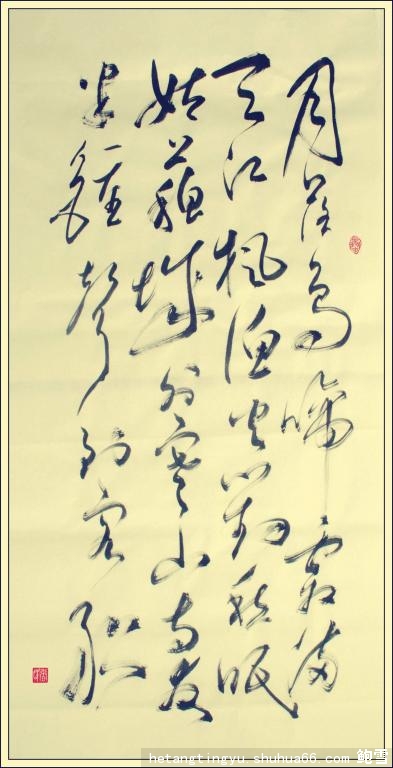 月落烏啼霜滿
天江枫渔火对愁眠
姑蘇城外寒山寺夜
半鐘聲到客船
hetangtingyu shuhua66 com 鲍雪